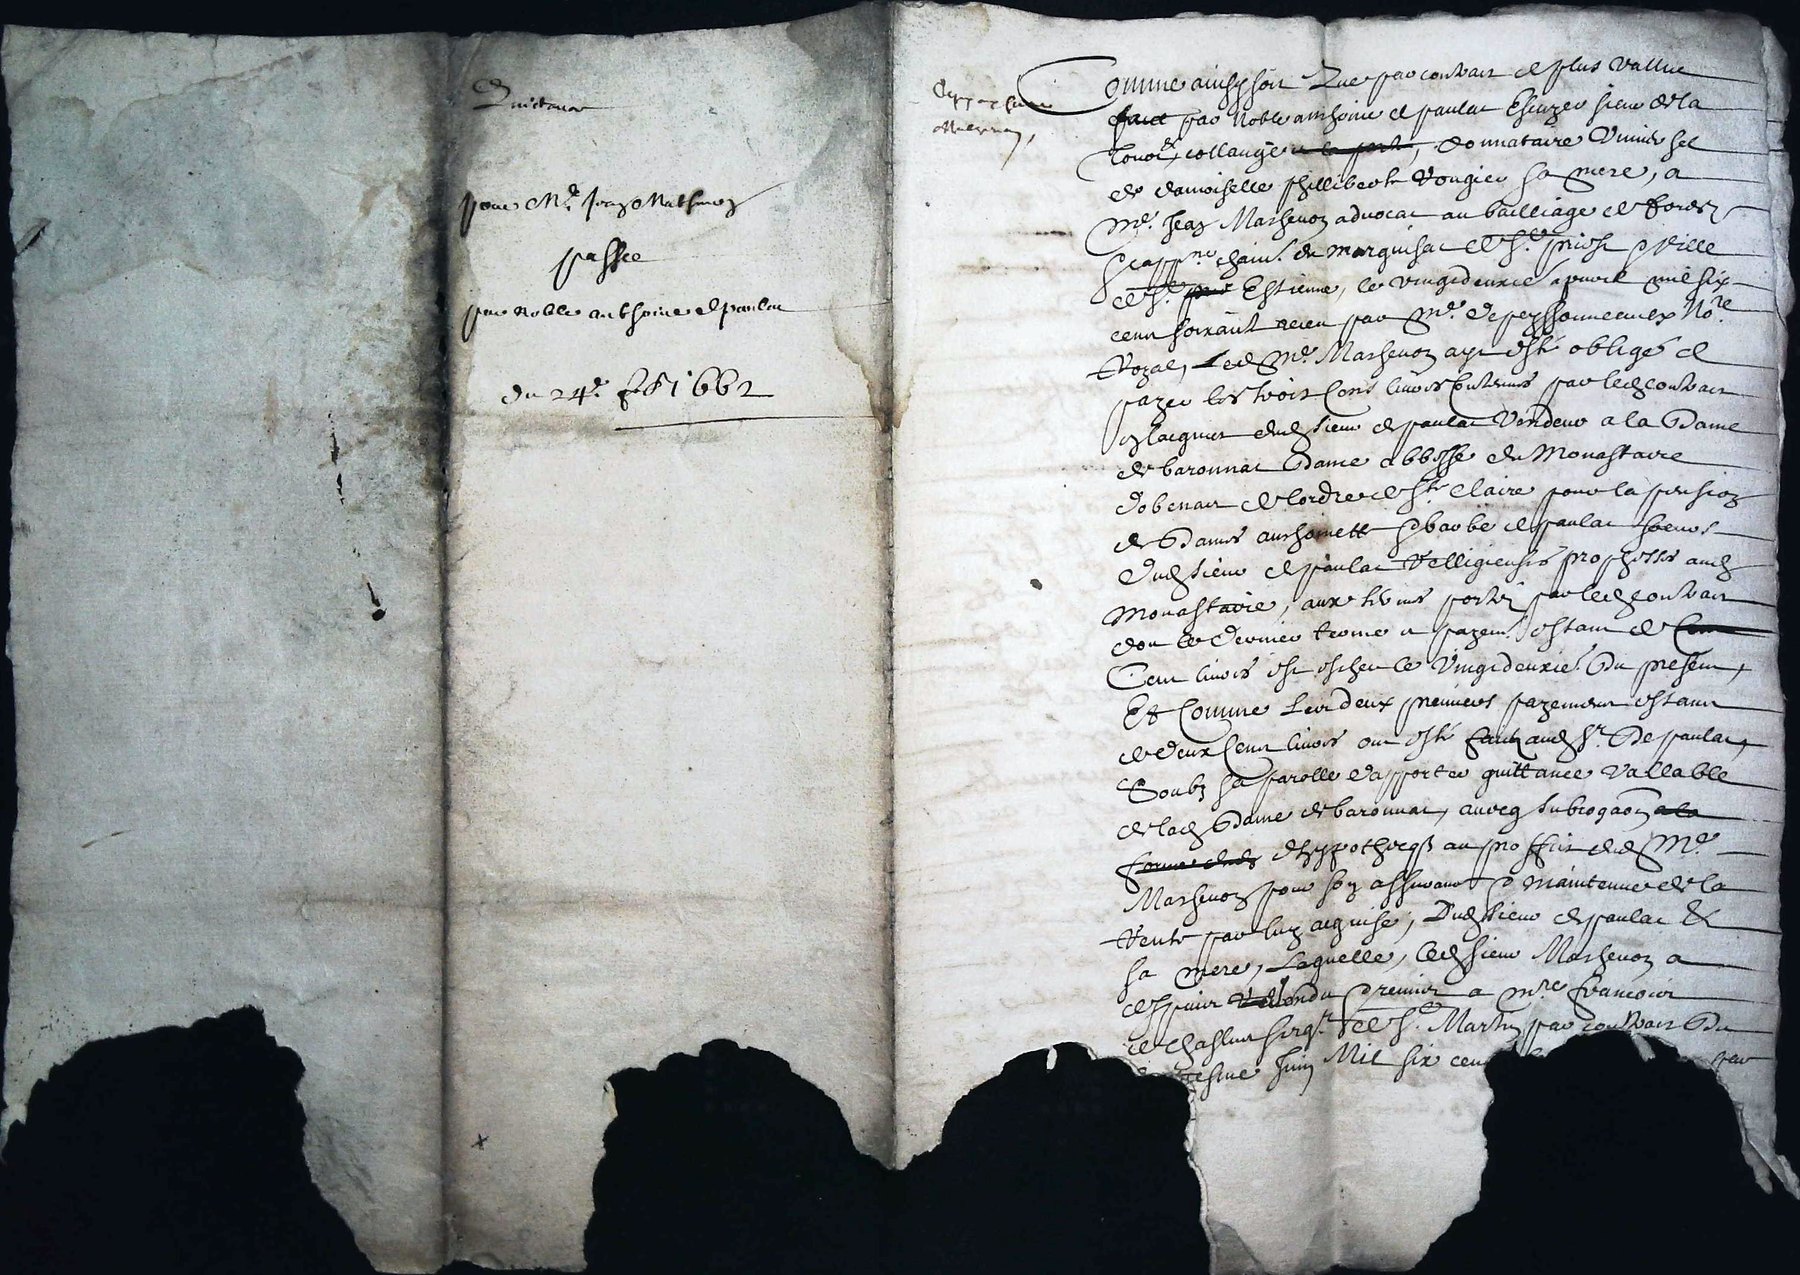 Quictance
pour Me. Jean Mathevon
passée
par noble anthoine de paulat
du 24e. 1662
Comme ainsy soit Que par contrait de plus vallue
faict par Noble anthoine de paulat Escuyer sieur de la
collange donnataire Univerhel
de damoiselle phillibert Vougier sa mere, a
Me. Jean Mathevon advocat au bailliage de forestz
du marquisat de St. priest
de St. Estienne, le vingtdeuxie. apvvril mil six
cent soixant receu par Me. depeyssonneaux Nore.
Royal, Led. Me. Mathevon aye esté obligé de
payer les trois Cens livres Contenus par led. contrait
a lacquit dud. sieur de paulat Vendeur a la Dame
de baronnat Dame abbesse du Monastaire
de lordre de Ste. Claire pour la pension
de Dames anthoinette & barbe de paulat soeurs
dud. sieur de paulat Relligieuses professes aud.
Monastaire, aux termes portés par led. contrait
dont le dernier terme et payemt. estant de Cent
Cent livres est escheu le Vingtdeuxie. Du present,
Et Comme Les deux premiers payement estant
de deux Cent livres ont esté faictz aud. Sr. De paulat,
Soubz sa parolle dapporter quittance Vallable
de lad. Dame de baronnat, avecq subrogaon a la
forme dud. dhyppothecq au proffict dud. Me.
Mathevon pour son assurance & maintenue de la
Vente par luy acquise, Dud. sieur de paulat &
sa mere, Laquelle, led. sieur Mathevon a
despuis Vendu & remise a Mre. francois
de chaslus de St. Martin par contrait Du
Juin Mil six cent par